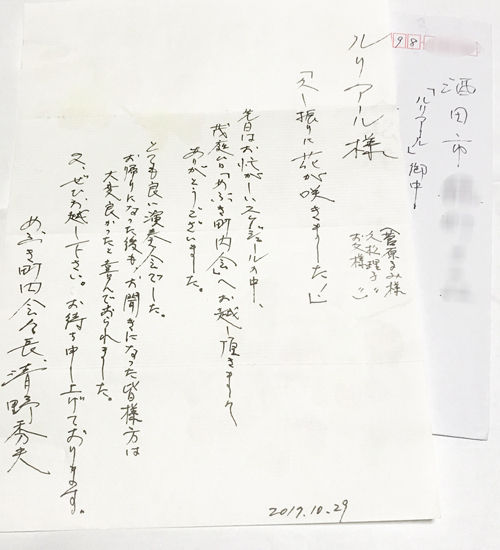 98
酒田市
「ルリアール」御中
ルリアール様
(菅原るみ様
久松理子〃
お父様〃)
「久し振りに花が咲きました！」
先日はお忙がしいスケジュールの中、
茂庭台「めぶき町内会」へお越し頂きまして
ありがとうございました。
とても良い演奏会でした。
お帰りになった後も、お聞きになった皆様方は
大変良かったと喜んでおられました。
又、ぜひお越し下さい。お待ち申し上げております。
めぶき町内会々長、清野秀夫
2017.10.29